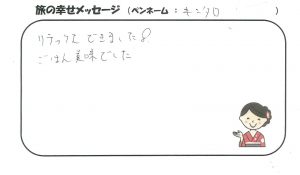 旅の幸せメッセージ (ペンネーム：キンタロ )
リラックスできました♪
ごはん美味でした